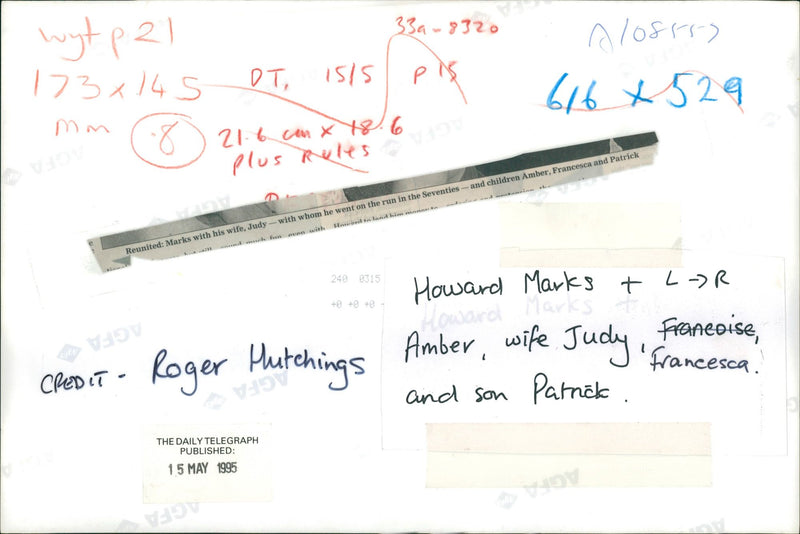 wyt p21
173 x 145
mm
.8
DT, 15/5
33a-8320
p 15
21.6 cm x 18.6
plus rules
616 x 529
Reunited: Marks with his wife, Judy — with whom he went on the run in the Seventies — and children Amber, Francesca and Patrick
240 0315
+0 +0 +0
Howard Marks + L → R
Amber, wife Judy, Francoise,
Francesca.
and son Patrick.
CREDIT - Roger Hutchings
THE DAILY TELEGRAPH
PUBLISHED:
15 MAY 1995
AGFA
AGFA
AGFA
AGFA
AGFA
AGFA